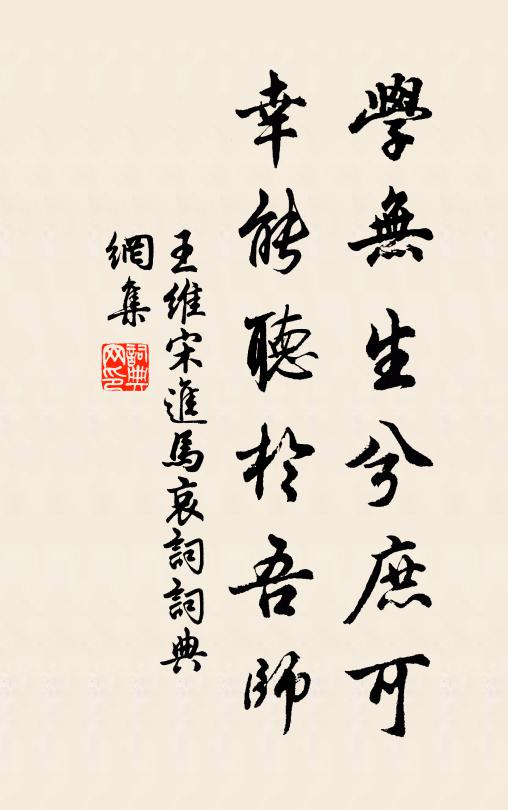 學無生兮庶可
幸能聽於吾師
王維宋進馬哀詞詞典
網集
詞典
网印